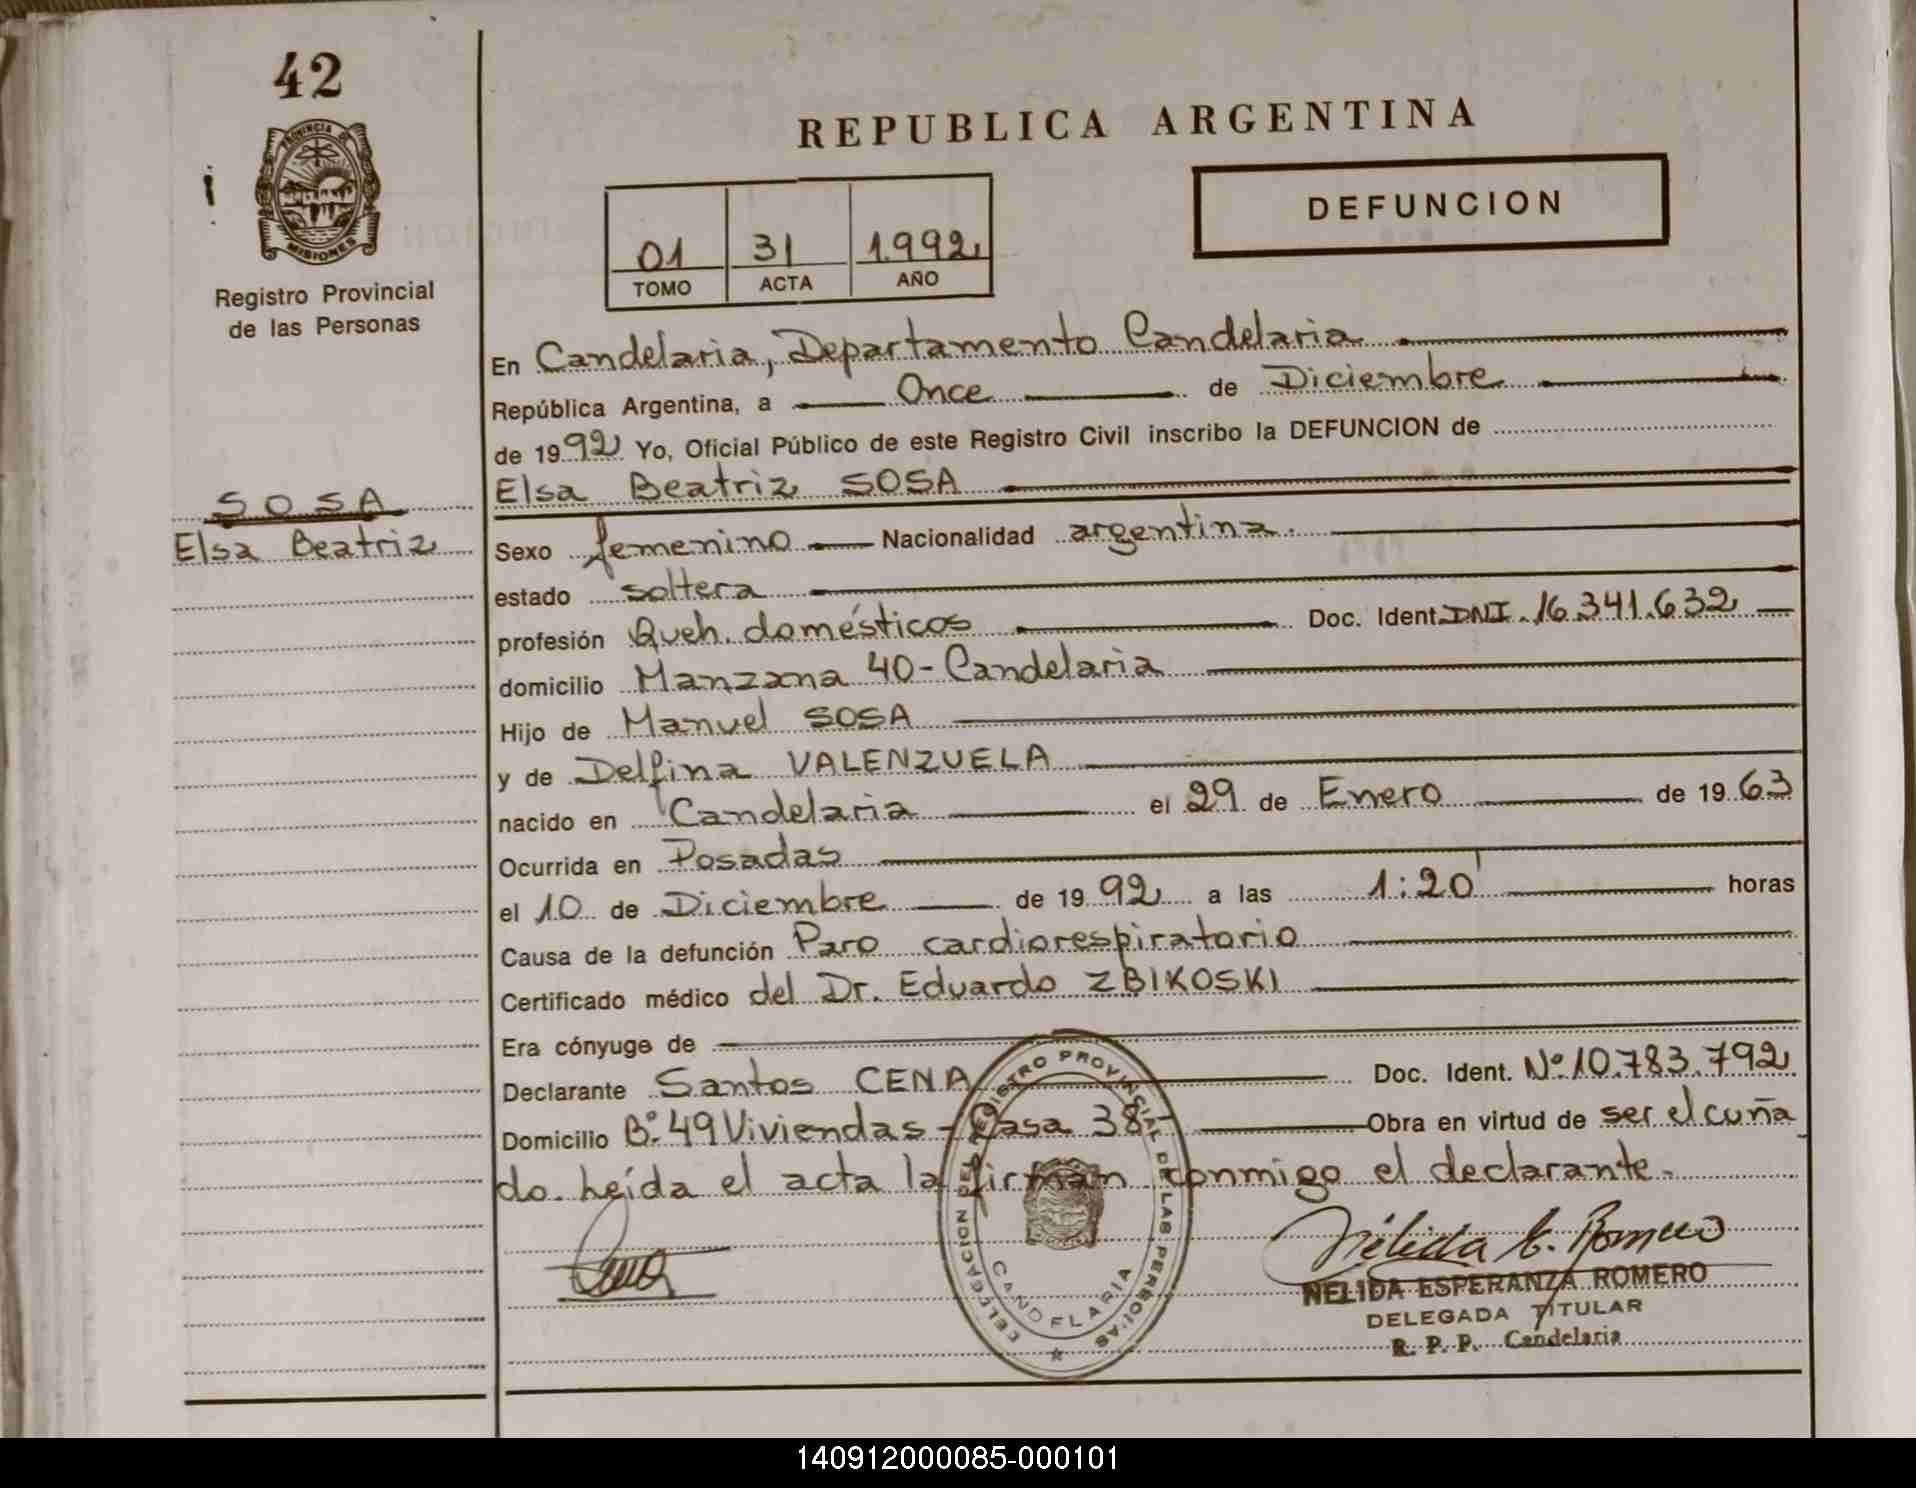 42
PROVINCIA DE
MISIONES
Registro Provincial
de las Personas
SOSA
Elsa Beatriz
REPUBLICA ARGENTINA
DEFUNCION
01 31 1.992
TOMO ACTA AÑO
En Candelaria, Departamento Candelaria
República Argentina, a Once de Diciembre
de 1992 Yo, Oficial Público de este Registro Civil inscribo la DEFUNCION de
Elsa Beatriz SOSA
Sexo femenino Nacionalidad argentina
estado soltera
profesión Queh. domésticos Doc. Ident. DNI. 16.341.632
domicilio Manzana 40 - Candelaria
Hijo de Manuel SOSA
y de Delfina VALENZUELA
nacido en Candelaria el 29 de Enero de 1963
Ocurrida en Posadas
el 10 de Diciembre de 1992 a las 1:20' horas
Causa de la defunción Paro cardiorespiratorio
Certificado médico del Dr. Eduardo ZBIKOSKI
Era cónyuge de
Declarante Santos CENA Doc. Ident. Nº 10.783.792
Domicilio Bº 49 Viviendas - Casa 38 - Obra en virtud de ser el cuña
do. Leída el acta la firman conmigo el declarante.
DELEGACION DEL REGISTRO PROVINCIAL DE LAS PERSONAS
CANDELARIA
Nélida E. Romero
NELIDA ESPERANZA ROMERO
DELEGADA TITULAR
R. P. P. Candelaria
140912000085-000101